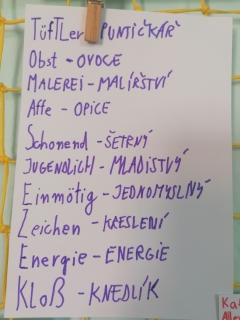 TüfTLer PUNTIČKÁŘ
Obst - OVOCE
MALEREI - MALÍŘSTVÍ
Affe - OPICE
Schonend - ŠETRNÝ
JUGENDLICH - MLADISTVÝ
Einmötig - JEDNOMYSLNÝ
Zeichen - KRESLENÍ
Energie - ENERGIE
Kloß - KNEDLÍK
Ka